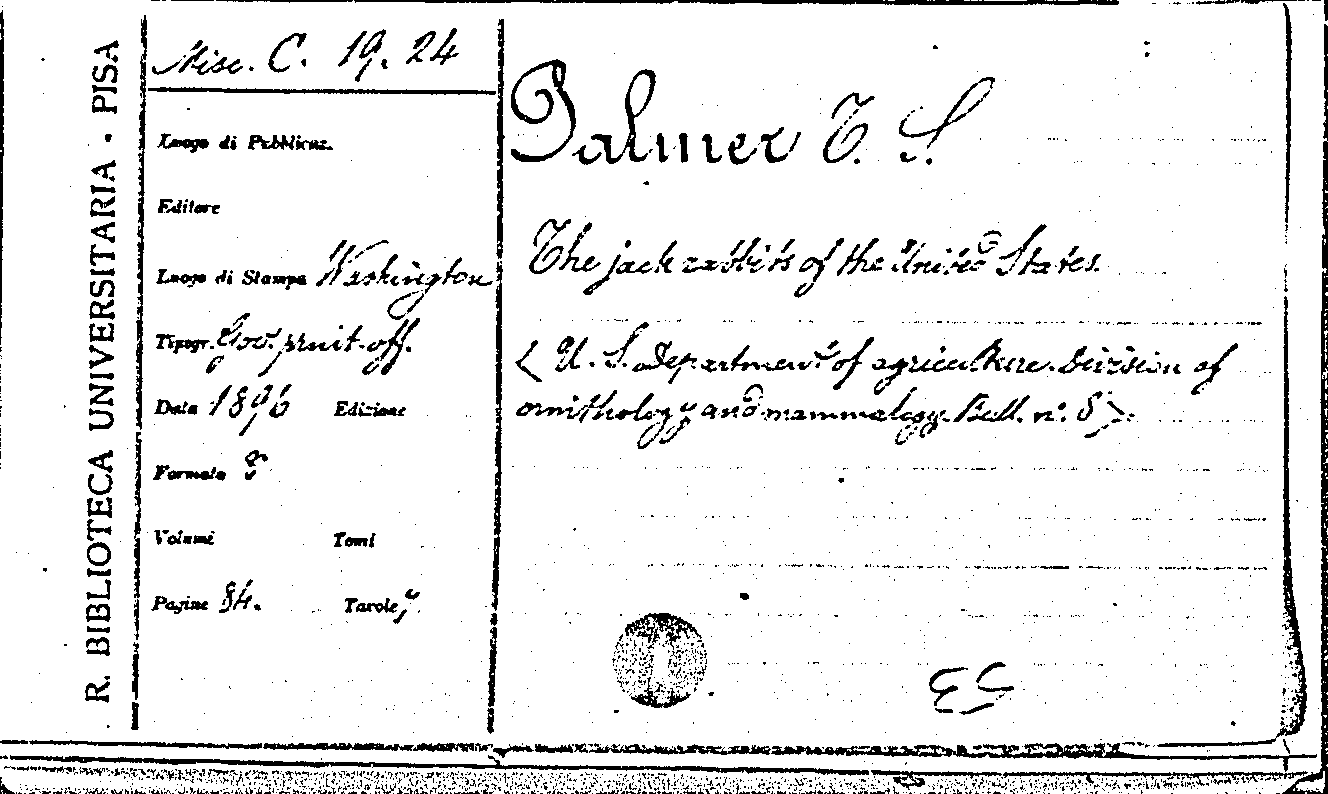 R. BIBLIOTECA UNIVERSITARIA - PISA
Misc. C. 19. 24
Luogo di Pubblicaz.
Editore
Luogo di Stampa Washington
Tipogr. Gov. print. off.
Data 1896 Edizione
Formato 8°
Volumi Tomi
Pagine 84. Tavole
Palmer T. S.
The jack rabbits of the United States.
( U. S. Department of agriculture. Division of
ornithology and mammalogy. Bull. n.° 8 ).